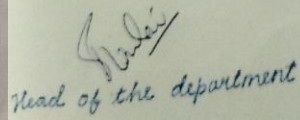 Head of the department